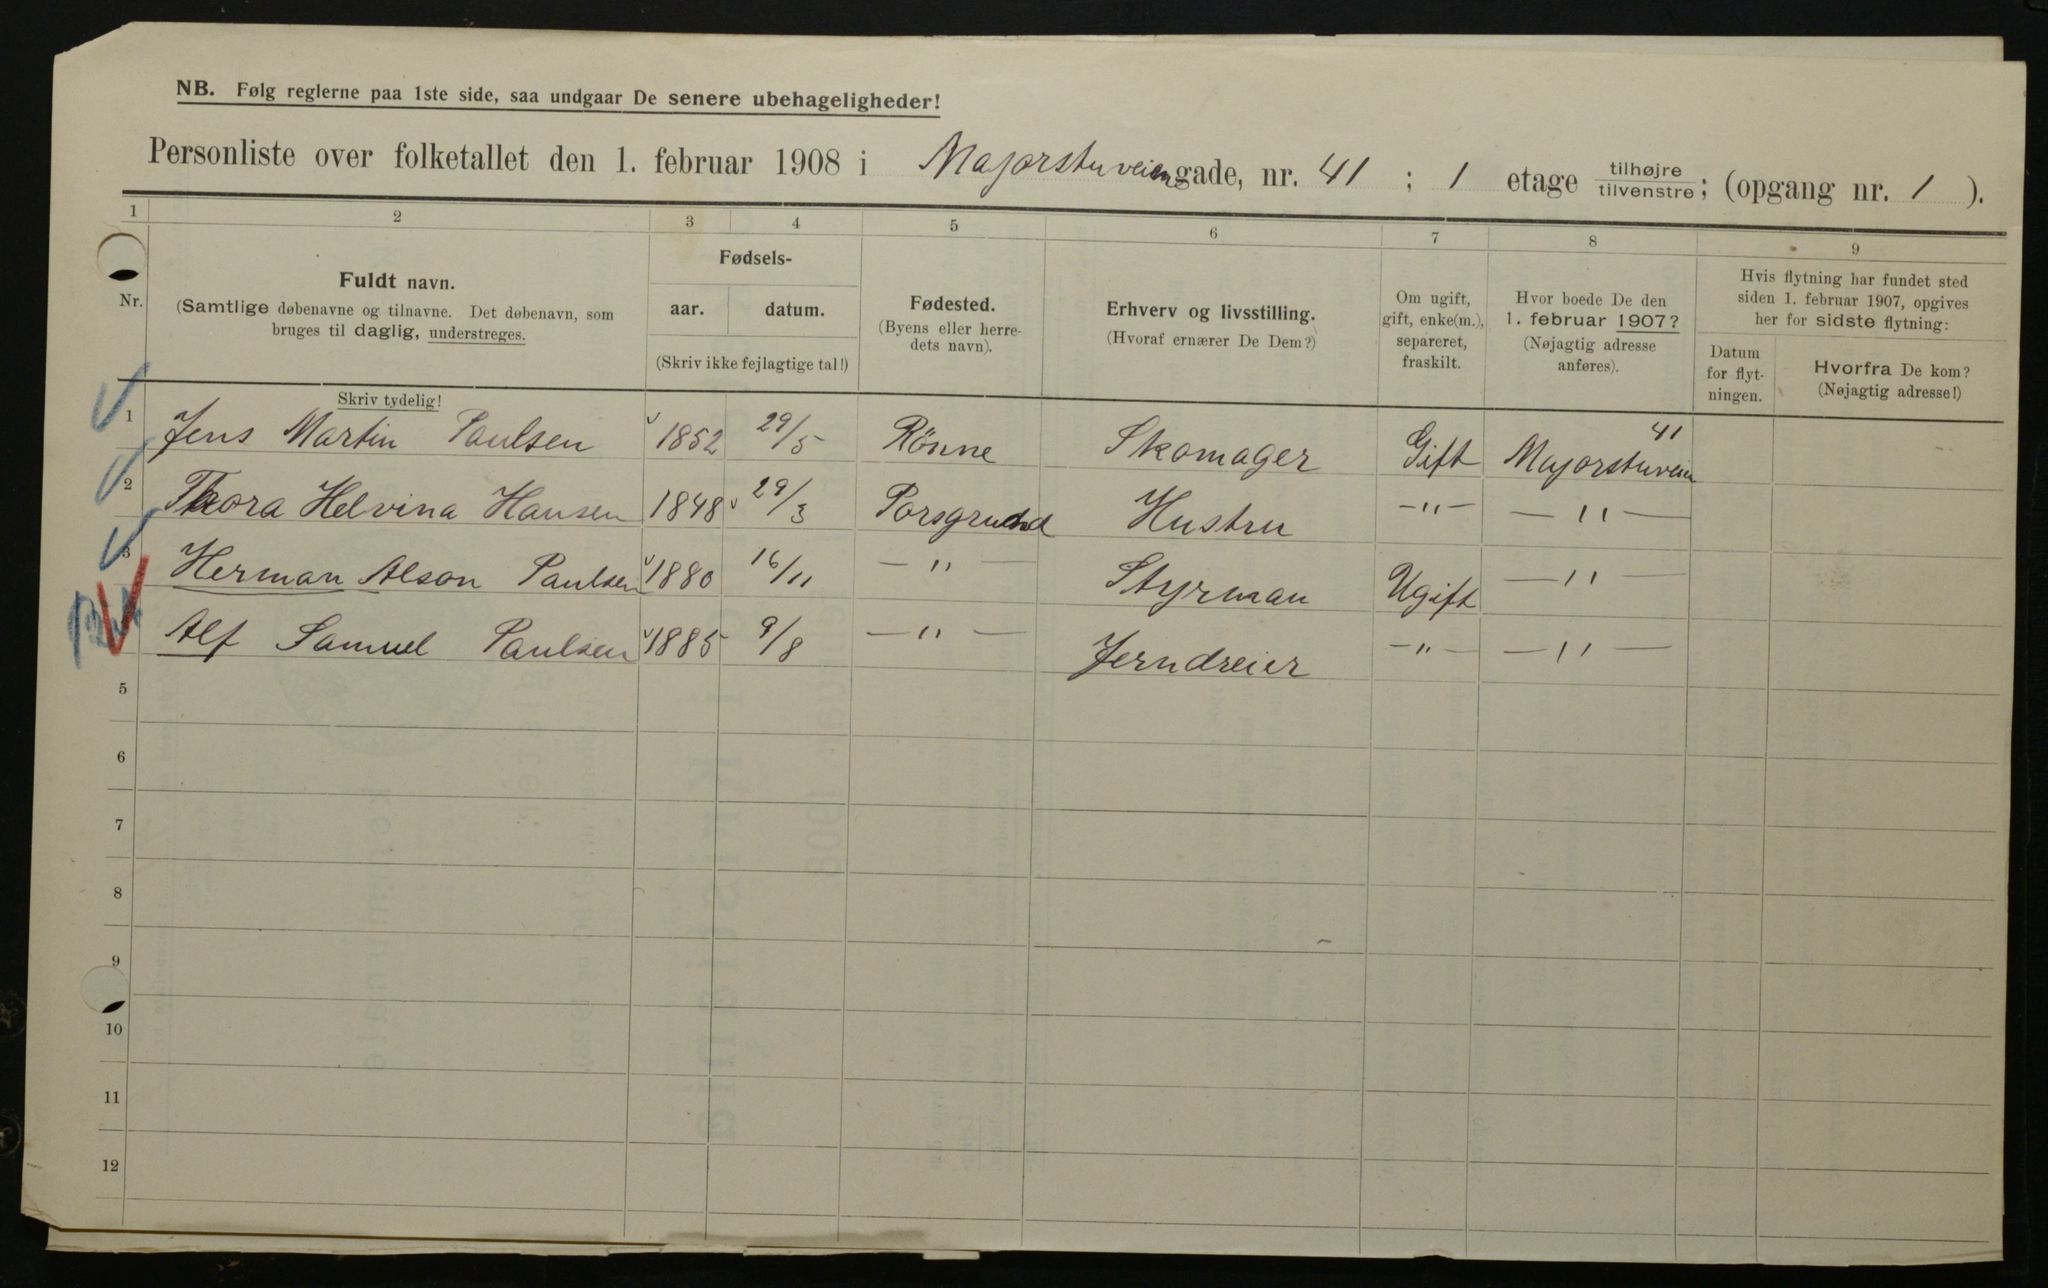 NB. Følg reglerne paa 1ste side, saa undgaar De senere ubehageligheder!
Personliste over folketallet den 1. februar 1908 i Majorstuveien gade, nr. 41 ; 1 etage tilhøjre tilvenstre; (opgang nr. 1 ).
1 2 3 4 5 6 7 8 9
Nr.
Fuldt navn.
(Samtlige døbenavne og tilnavne. Det døbenavn, som
bruges til daglig, understreges.
Skriv tydelig!
Fødsels-
aar. datum.
(Skriv ikke fejlagtige tal!)
Fødested.
(Byens eller herre-
dets navn).
Erhverv og livsstilling.
(Hvoraf ernærer De Dem?)
Om ugift,
gift, enke(m.),
separeret,
fraskilt.
Hvor boede De den
1. februar 1907?
(Nøjagtig adresse
anføres).
Hvis flytning har fundet sted
siden 1. februar 1907, opgives
her for sidste flytning:
Datum
for flyt-
ningen.
Hvorfra De kom?
(Nøjagtig adresse!)
1 Jens Martin Paulsen 1852 29/5 Rönne Skomager Gift Majorstuveien 41
2 Thora Helvina Hansen 1848 29/3 Porsgrund Hustru -"- -"-
3 Herman Alson Paulsen 1880 16/11 -"- Styrman Ugift -"-
Alf Samuel Paulsen 1885 9/8 -"- Jerndreier -"- -"-
5
6
7
8
9
10
11
12